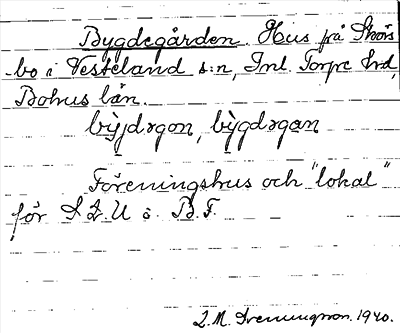 Bygdegården. Hus på Skårs-
bo i Vesteland s:n, Inl. Torpe hd,
Bohus län.
bỳjdɤgon, bỳgdɤgan
Föreningshus och "lokal"
för S L U o. B.F.
L.M. 1940.